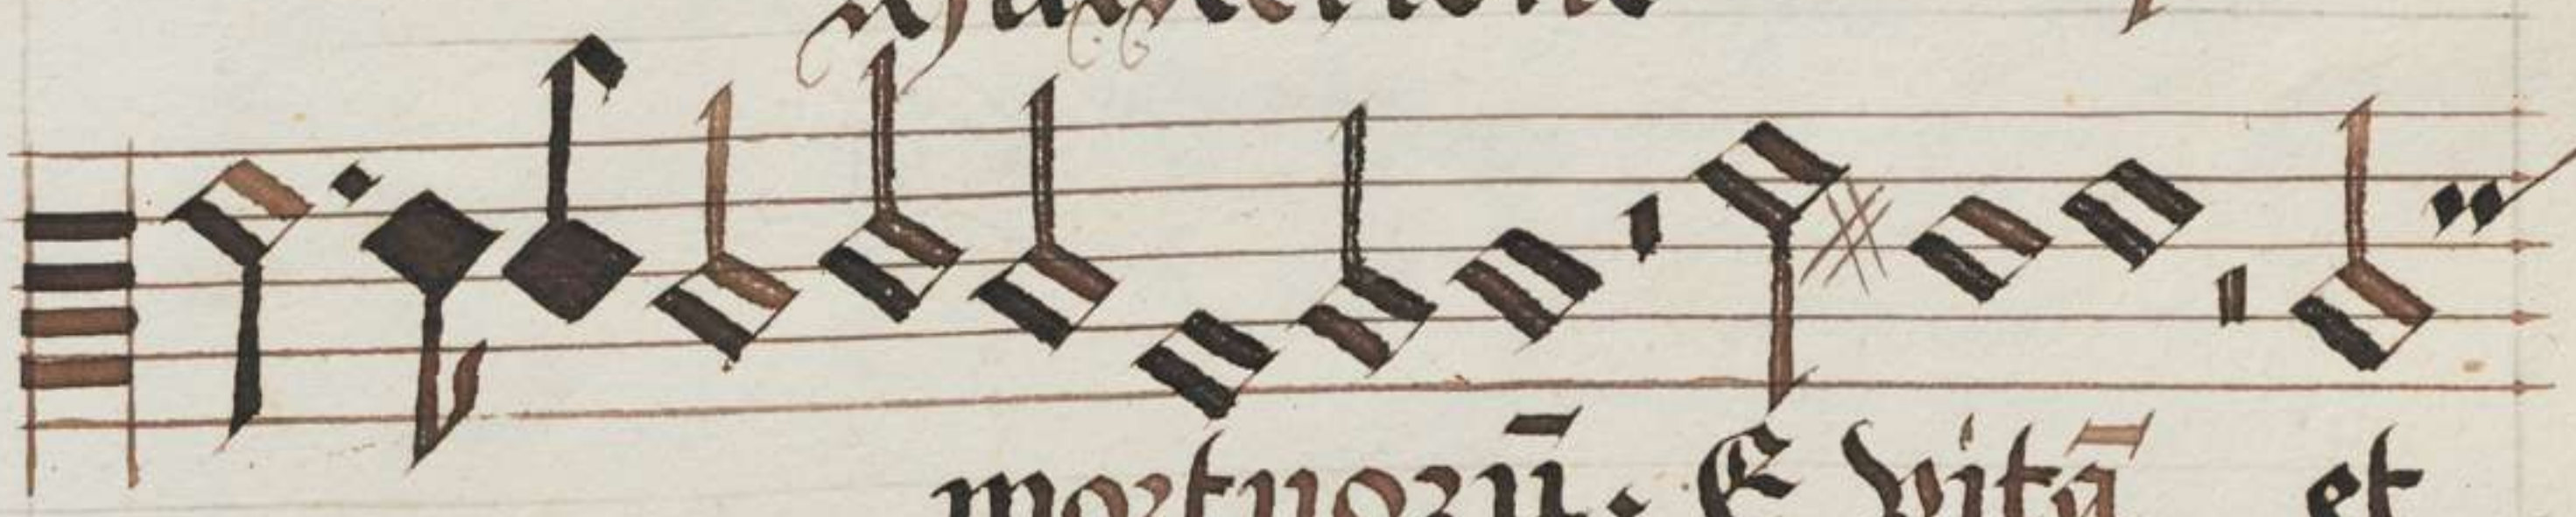 mortuorū. E vitā et